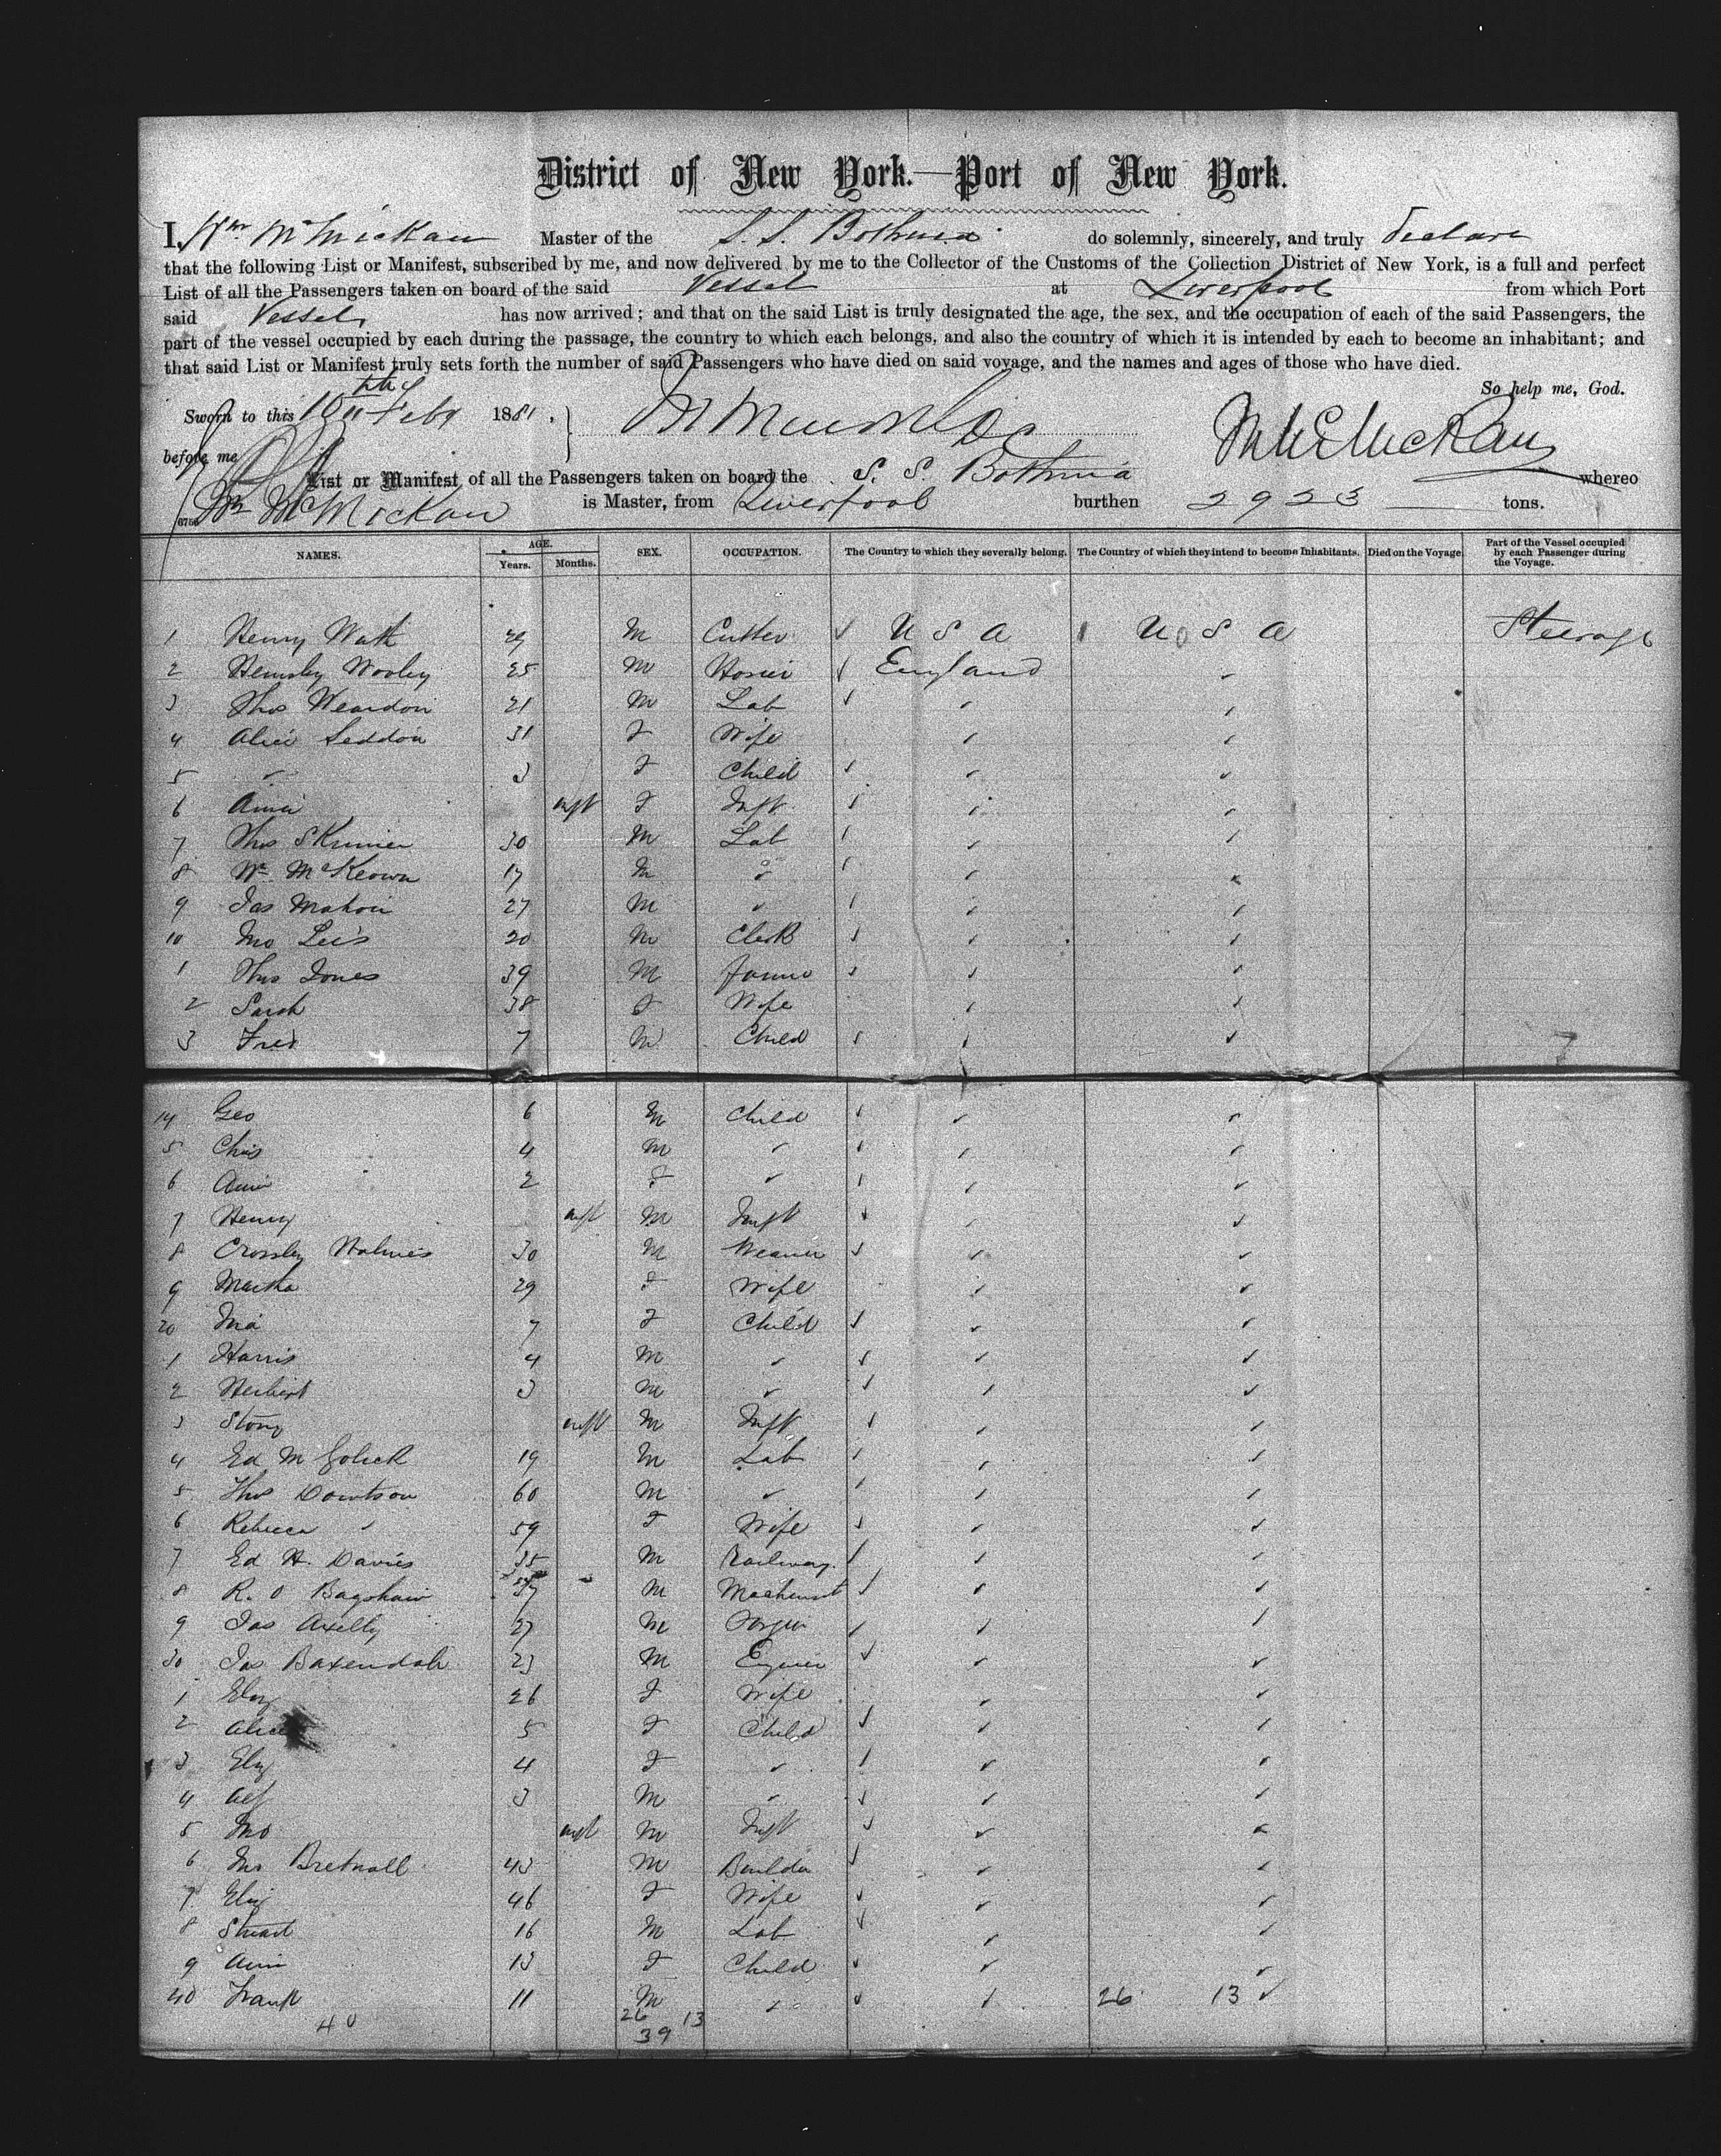 District of New York.—Port of New York.
I, Wm McMickan Master of the S. S. Bothnia do solemnly, sincerely, and truly Declare
that the following List or Manifest, subscribed by me, and now delivered by me to the Collector of the Customs of the Collection District of New York, is a full and perfect
List of all the Passengers taken on board of the said Vessel at Liverpool from which Port
said Vessel has now arrived; and that on the said List is truly designated the age, the sex, and the occupation of each of the said Passengers, the
part of the vessel occupied by each during the passage, the country to which each belongs, and also the country of which it is intended by each to become an inhabitant; and
that said List or Manifest truly sets forth the number of said Passengers who have died on said voyage, and the names and ages of those who have died.
So help me, God.
Sworn to this 10th Feby 1881. W McMickan
before me
List or Manifest of all the Passengers taken on board the S. S. Bothnia whereo
Wm McMickan is Master, from Liverpool burthen 2923 tons.
NAMES. AGE. Years. Months. SEX. OCCUPATION. The Country to which they severally belong. The Country of which they intend to become Inhabitants. Died on the Voyage. Part of the Vessel occupied by each Passenger during the Voyage.
1 Henry M Cutler U S A U S A Steerage
2 Hemsley Wooley 25 M Hosier England
3 Thos Weardon 21 M Lab
4 Alice Seddon 31 F Wife
5 " 3 F Child
6 Annie inft F Inft
7 Thos Skinner 30 M Lab
8 Wm McKeown 17 M "
9 Jas Mahon 27 M "
10 Jno Lees 20 M Clerk
1 Thos Jones 39 M Farmer
2 Sarah 38 F Wife
3 Fred 7 M Child
14 Geo 6 M Child
5 Chas 4 M "
6 Annie 2 F "
7 Henry inft M Inft
8 Crossley Holmes 30 M Weaver
9 Martha 29 F Wife
20 7 F Child
1 Harris 4 M "
2 Herbert 3 M "
3 inft M Inft
4 Ed M Golick 19 M Lab
5 Thos 60 M "
6 Rebecca " 59 F Wife
7 Ed H. Davies 35 M Railway
8 R. O Bagshaw M Machinist
9 Jas 27 M
30 Jas Baxendale 23 M Engineer
1 Eliz 26 F Wife
2 Alice 5 F Child
3 Eliz 4 F "
4 Alf 3 M "
5 Jno inft M Inft
6 Jno Bretnall 43 M Builder
7 Eliz 46 F Wife
8 Stuart 16 M Lab
9 Annie 13 F Child
40 Frank 11 M " 26 13
40 26 13
39